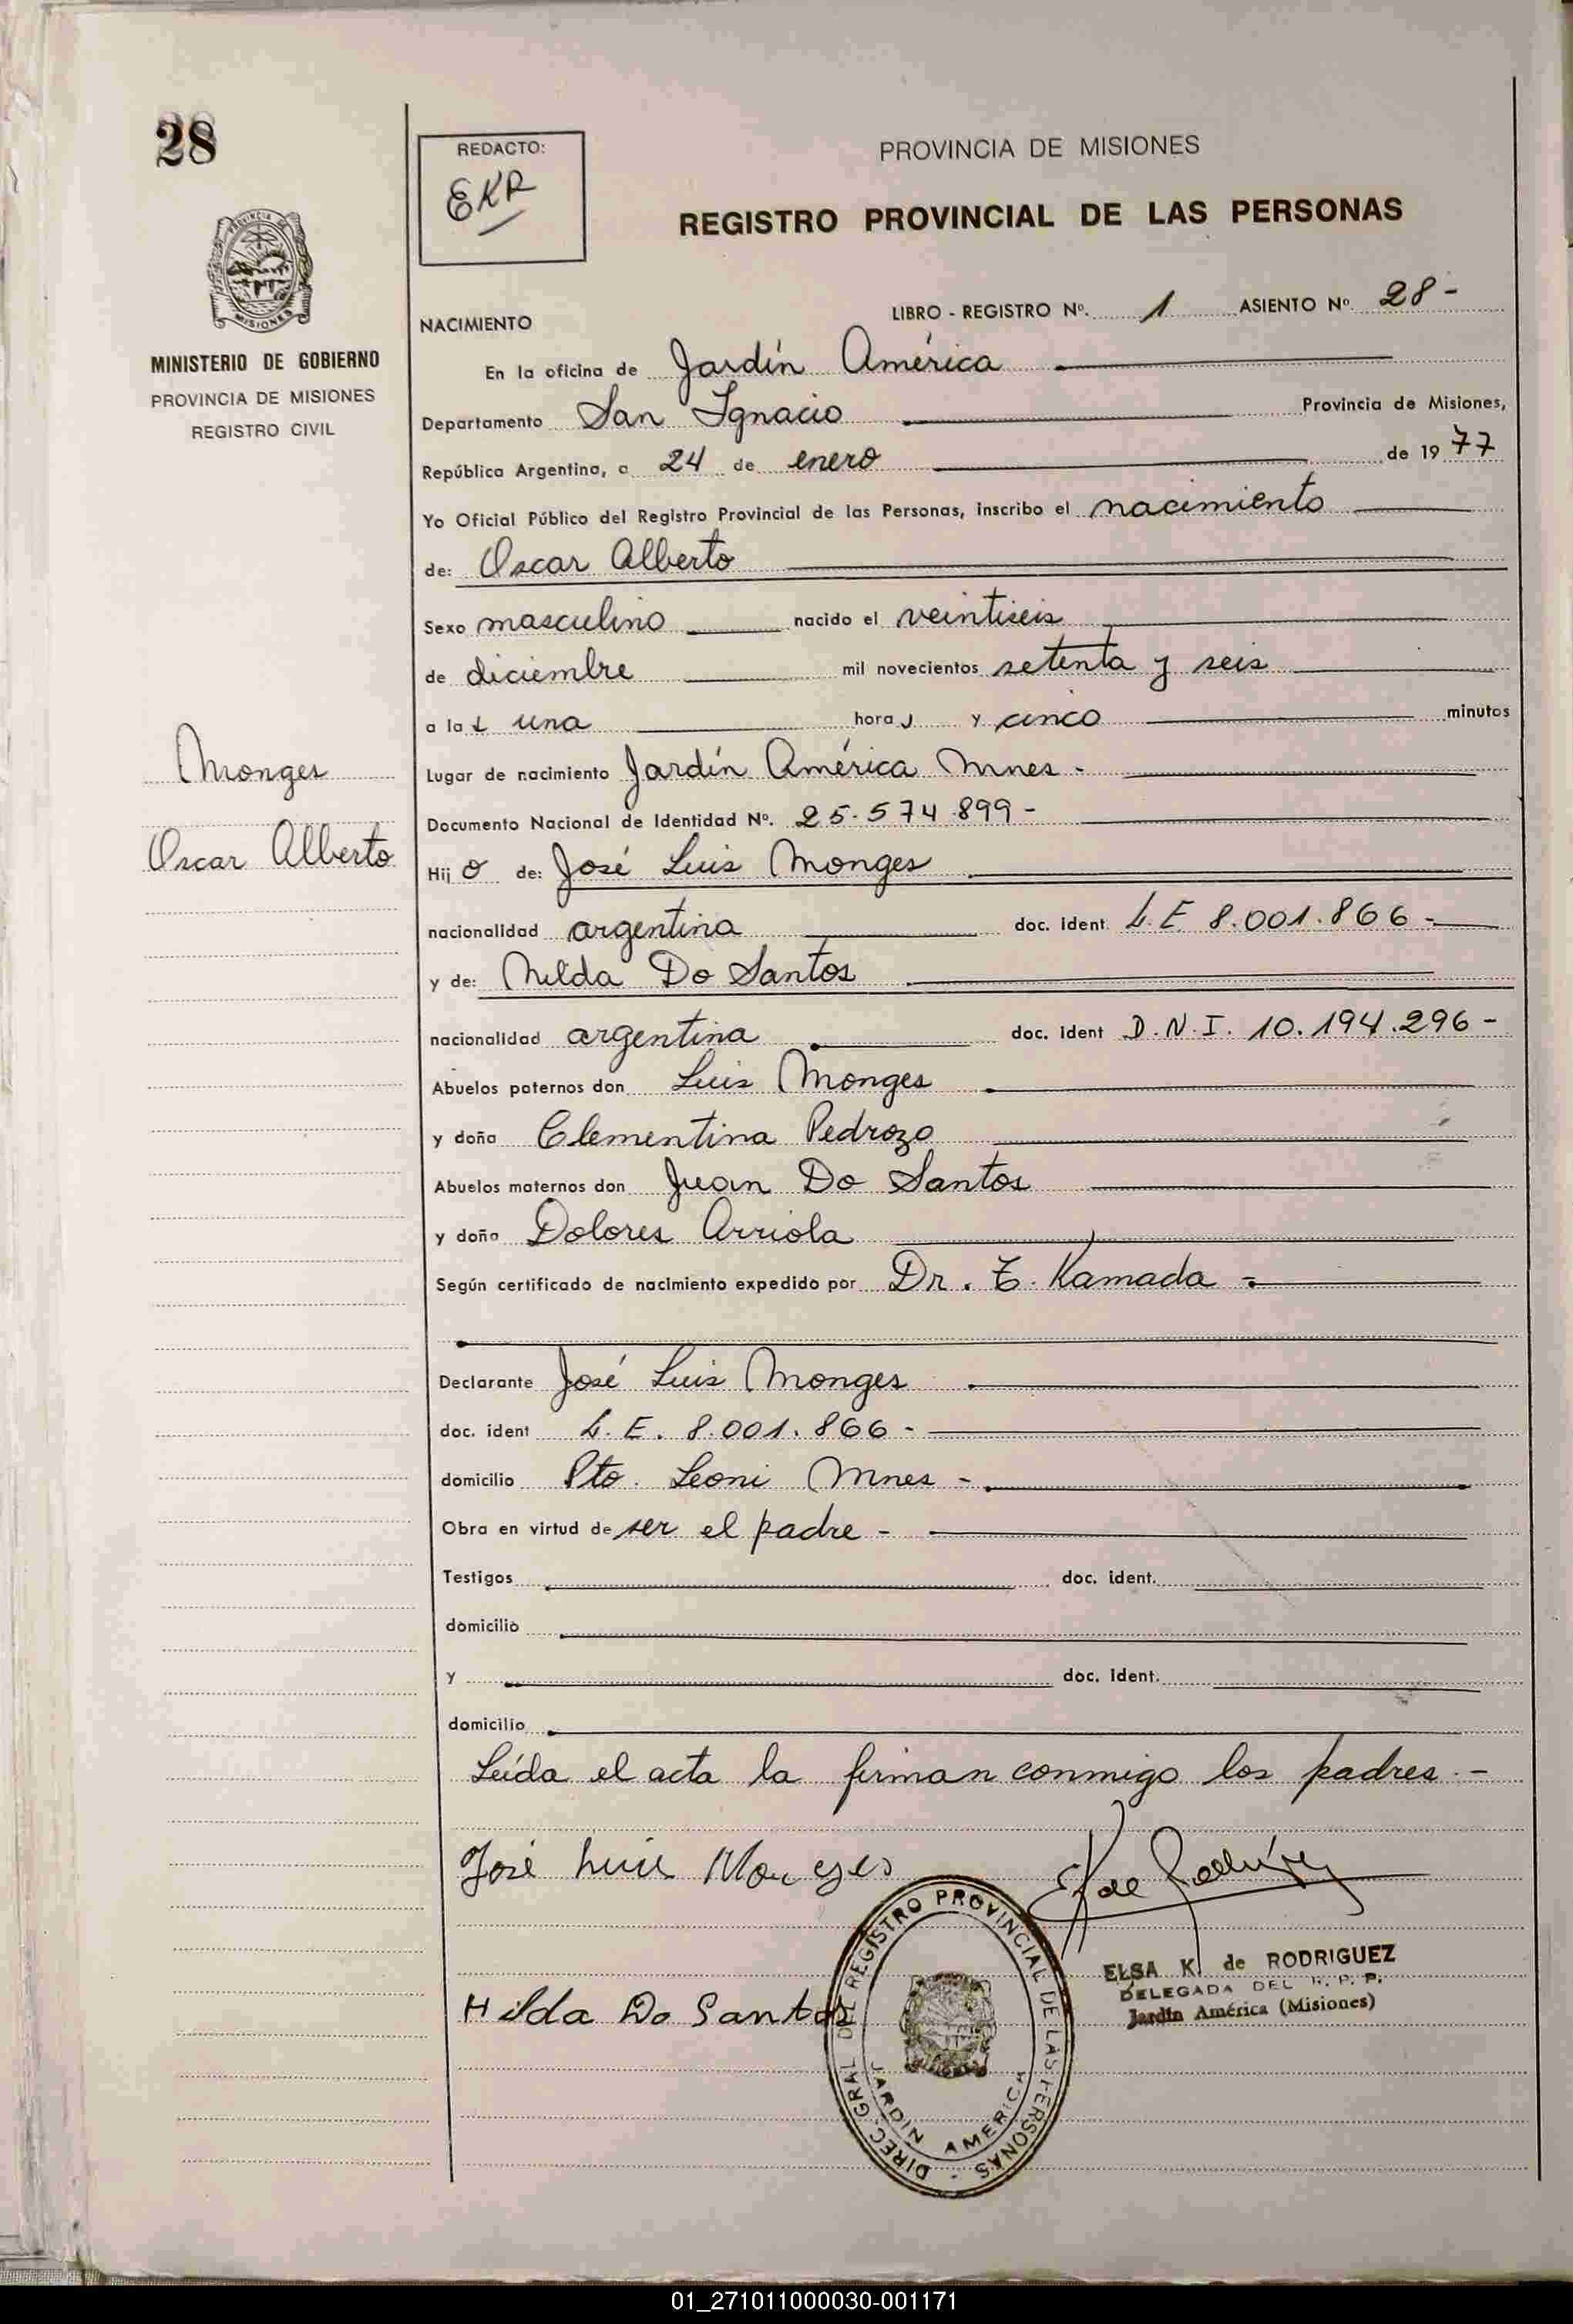 28
PROVINCIA DE MISIONES
MINISTERIO DE GOBIERNO
PROVINCIA DE MISIONES
REGISTRO CIVIL
Monges
Oscar Alberto
REDACTO:
EKR
PROVINCIA DE MISIONES
REGISTRO PROVINCIAL DE LAS PERSONAS
NACIMIENTO LIBRO - REGISTRO Nº. 1 ASIENTO Nº. 28 -
En la oficina de Jardín América
Departamento San Ignacio Provincia de Misiones,
República Argentina, a 24 de enero de 1977
Yo Oficial Público del Registro Provincial de las Personas, inscribo el nacimiento
de: Oscar Alberto
Sexo masculino nacido el veintiseis
de diciembre mil novecientos setenta y seis
a la una hora y cinco minutos
Lugar de nacimiento Jardín América Mnes -
Documento Nacional de Identidad Nº. 25.574.899 -
Hijo de: José Luis Monges
nacionalidad argentina doc. ident. L.E. 8.001.866 -
y de: Hilda Do Santos
nacionalidad argentina doc. ident D.N.I. 10.194.296 -
Abuelos paternos don Luis Monges
y doña Clementina Pedrozo
Abuelos maternos don Juan Do Santos
y doña Dolores Arriola
Según certificado de nacimiento expedido por Dr. T. Kamada -
Declarante José Luis Monges
doc. ident L.E. 8.001.866 -
domicilio Pto. Leoni Mnes -
Obra en virtud de ser el padre -
Testigos doc. ident.
domicilio
y doc. ident.
domicilio
Leída el acta la firman conmigo los padres. -
José Luis Monges
EK de Rodríguez
ELSA K. de RODRIGUEZ
DELEGADA DEL R. P. P.
Jardín América (Misiones)
Hilda Do Santos
DIREC. GRAL DEL REGISTRO PROVINCIAL DE LAS PERSONAS -
JARDIN AMERICA
01_271011000030-001171